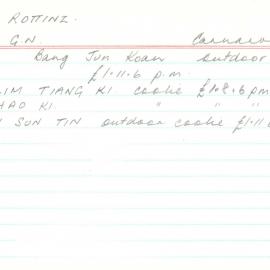 ROTTINZ.
G.N
Bang Jun Koan outdoor
£1.11.6 p.m.
LIM TIANG KI. coolie £1.8.6 p.m
HAO KI. " " "
SUN TIN outdoor coolie £1.11.6